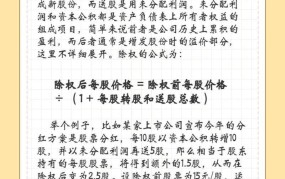 成新股份，而送股是用来分配利润。未分配利
润和资本公积都是资产负债表上所有者权益的
组成项目，简单来说前者是公司历史上累积的
盈利，而后者通常是增发股份时的溢价部分，
这里不详细展开。除权的公式为：
除权后每股价格 = 除权前每股价格
÷（1+ 每股转股和送股总数）
单个例子，比如某家上市公司宣布今年的分
红方案是股票分红，每10股以资本公积转增10
股，并以未分配利润再送5股，那么相当于股东
持有的每股股票，将得到额外的1.5股，从而在
除权后变为2.5股。设除权前股票为15元/股，送